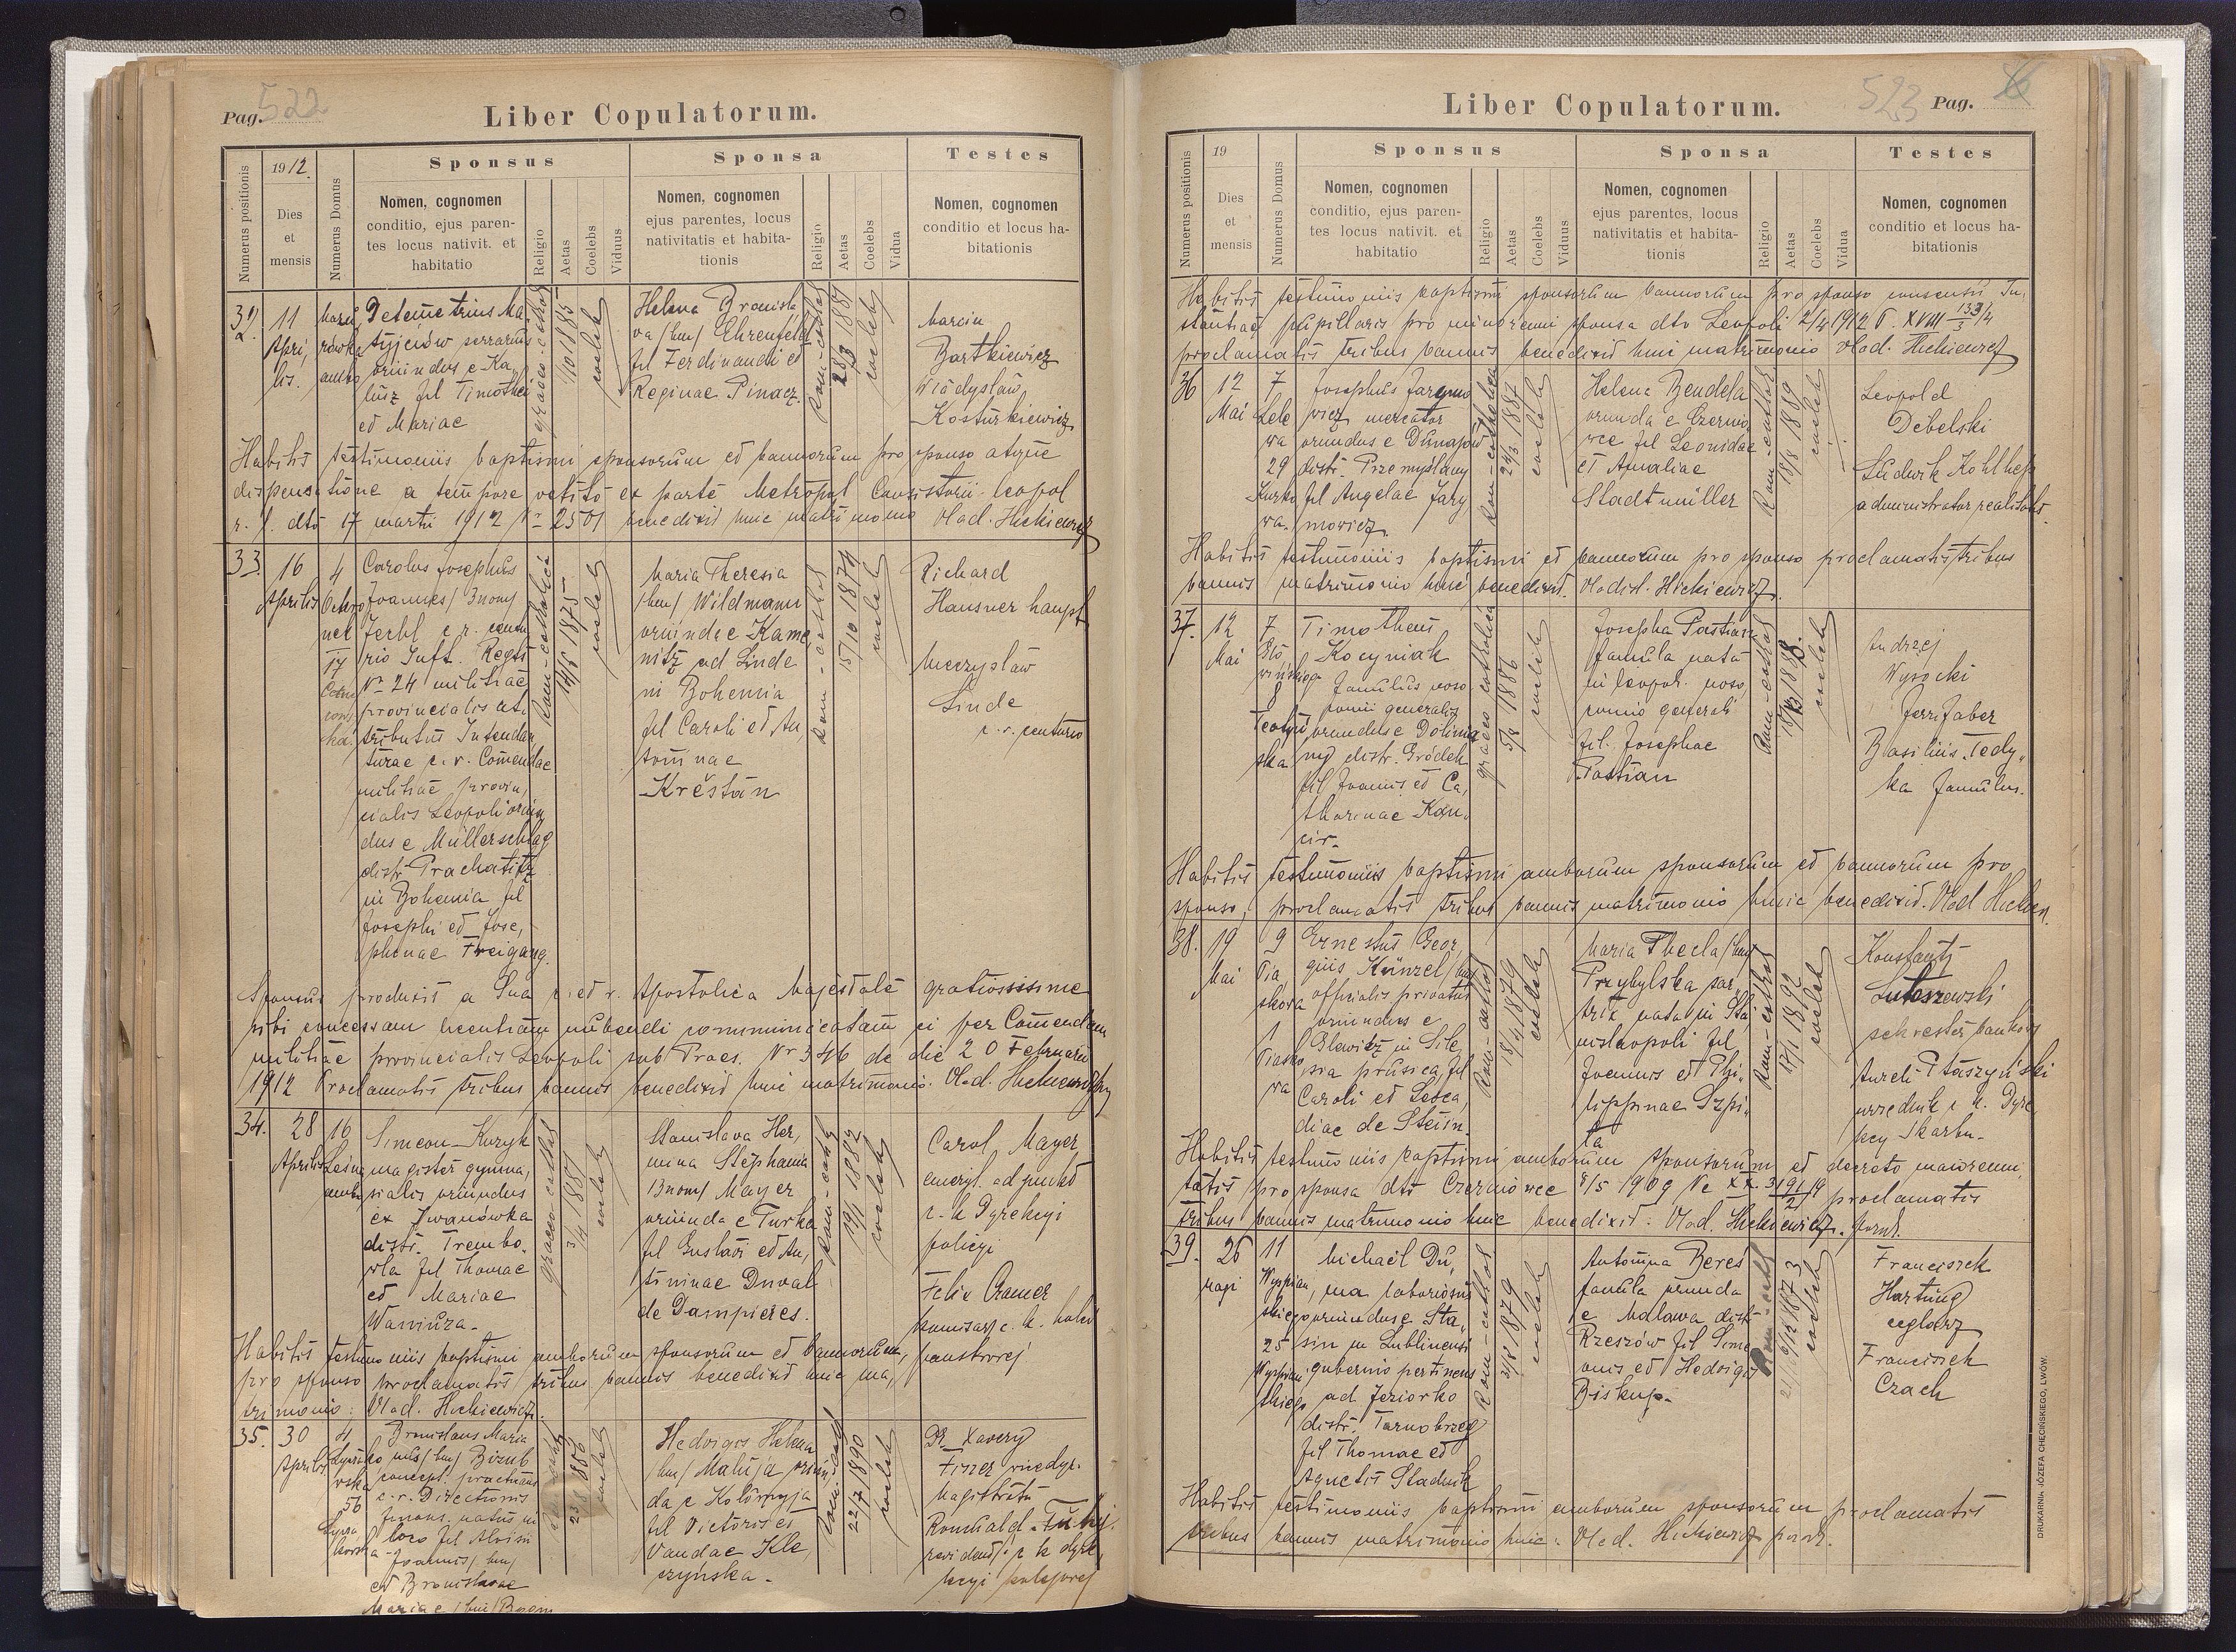 Pag. 522
Liber Copulatorum.
Numerus positionis
1912.
Dies
et
mensis
Numerus Domus
Sponsus
Nomen, cognomen
conditio, ejus paren-
tes locus nativit. et
habitatio
Religio
Aetas
Coelebs
Viduus
Sponsa
Nomen, cognomen
ejus parentes, locus
nativitatis et habita-
tionis
Religio
Aetas
Coelebs
Vidua
Testes
Nomen, cognomen
conditio et locus ha-
bitationis
32.
11
Apri,
lis.
ambo
Ma,
oriundus e Ka,
lusz fil Timothei
et Mariae
graeco-cathol
1/10 1885
coeleb
Helena Bronisla
va /bin/ Ehrenfeld
fil Ferdinandi et
Reginae Pinacz.
Rom-cathol
28/3 1887
coeleb
Marcin
Bartkiewicz
Wladysław
Kosturkiewicz
Habitis testimoniis baptismi sponsorum et bannorum pro sponso atque
dispensatione a tempore vetito ex parte Metropol Consistorii Leopol
r. l. dto 17 martii 1912 Nr 2501 benedixit huic matrimonio Vlad. Hickiewicz
33.
16
Aprilis
4
17
Carolus Josephus
Joannes / 3nom/
Zerbl c. r. 
Nr 24 militiae
provincialis at,
tributus Intendan
turae c. r. Comendae
militiae provin,
cialis Leopoli oriun
dus e Müllerschlag
distr Prachatitz
in Bohemia fil
Josephi et Jose,
phinae Freigang.
Rom-catholica
1875
coeleb
Maria Theresia
/bin/ Wildmann
oriunda e Kame,
nitz ad Linde
in Bohemia
fil Caroli et An,
toninae
Křeštan
Rom-cathol
15/10 1874
coeleb
Richard
Hausner haupt
Mieczysław
Linde
c. r. centurio
Sponsus produxit a Sua c. et r. Apostolica Majestate gratiosissime
sibi concessam licentiam nubendi communicatam ei per Comendam
militiae provincialis Leopoli sub Praes. Nr 346 de die 20 Februarii
1912 Proclamatis tribus bannis benedixit huic matrimonio. Vlad. Hickiewicz
34.
28
Aprilis
16
Leśna
ambo
Simeon Kuzyk
magister gymna,
sialis oriundus
ex Iwanówka
distr. Trembo,
wla fil Thomae
et Mariae
Waniura.
graeco-cathol
3/4 1881
coeleb
Stanislava Her,
mina Stephania
/3nom/ Mayer
oriunda e Turka
fil Gustavi et An,
toninae Duval
de Dampieres.
Rom-cath
19/1 1882
coeleb
Carol Mayer
c. k Dyrekcyi
policyi
Felix Cramer
komisarz c. k. kolei
panstwowej
Habitis testimoniis baptismi amborum sponsorum et bannorum,
pro sponso proclamatis tribus bannis benedixit huic ma,
trimonio: Vlad. Hickiewicz.
35.
30
Aprilis
4
56
Bronislaus Maria
/bin/ Bizub
concept. practicans
c. r. Directionis
finans. natus in
loco fil Aloisii
Joannis /bin/
et Bronislavae
Mariae /bin/
coeleb
Hedvigis Helena
/bin/ Matuja oriun,
da e Kolomyja
fil Victoris et
Vandae Kle,
czyńska.
Rom-cath
22/7 1890
coeleb
Dr. Xawery
Fiszer vicedyr.
Magistratu
Romuald
revident c k dyre,
kcyi kolejowej
Liber Copulatorum.
523 Pag.
Numerus positionis
19
Dies
et
mensis
Numerus Domus
Sponsus
Nomen, cognomen
conditio, ejus paren-
tes locus nativit. et
habitatio
Religio
Aetas
Coelebs
Viduus
Sponsa
Nomen, cognomen
ejus parentes, locus
nativitatis et habita-
tionis
Religio
Aetas
Coelebs
Vidua
Testes
Nomen, cognomen
conditio et locus ha-
bitationis
Habitis testimoniis baptismi sponsorum bannorum pro sponso consensu In,
stantiae pupillaris pro minorenni sponsa dto Leopoli 2/4 1912 P. XVIII
proclamatis tribus bannis benedixit huic matrimonio Vlad. Hickiewicz
36
12
Mai
7
Lele
wa
29
Kurko
wa.
Josephus Jaryno
wicz mercator
oriundus e Dunajów
distr. Przemyślany
fil Angelae Jary
nowicz
Rom-catholica
1887
coeleb
Helena Bendela
oriunda e Czernio
wce fil Leonidae
et Amaliae
Stadtmüller
Rom-cathol
18/8 1889
coeleb
Leopold
Debelski
Ludwik Kohlhep
administrator realitatis.
Habitis testimoniis baptismi et bannorum pro sponso proclamatis tribus
bannis matrimonio huic benedixit. Vladisl. Hickiewicz.
37.
12
Mai
7
8
Timotheus
Kocyniak
famulus noso
comii generalis
oriundus e Dolinia
ny distr. Gródek
fil Joannis et Ca,
tharinae Kan,
cir.
graeco catholica
5/8 1886
coeleb
Josepha Pastian
famula nata
in Leopol. noso,
comio generali
fil. Josephae
Pastian
Rom-cathol
1888.
coeleb
Andrzej
Wysocki
Basilius Tedy,
ka famulus.
Habitis testimoniis baptismi amborum sponsorum et bannorum pro
sponso, proclamatis tribus bannis matrimonio huic benedixit. Vlad Hickiew.
38.
19
Mai
9
Pia
skowa
1
Piasko
wa
Ernestus Geor
gius Künzel /bin/
officialis privatus
oriundus e
Gleiwitz in Sile
sia prusica fil
Caroli et Leoca,
diae de Stein.
Rom-cathol
18/4 1879
coeleb
Maria Thecla /bin/
Przybylska sar,
trix nata in Sta
nislaopoli fil
Joannis et Phi,
lippinae Szpi,
la
Rom-cathol
17/1 1892
coeleb
Konstanty
Lutoszewski
Aureli Ptaszyński
urzednik c k. Dyre,
kcy Skarbu.
Habitis testimoniis baptismi amborum sponsorum et decreto maiorenni,
tatis pro sponsa dto Czerniowce 8/5 1909 proclamatis
tribus bannis matrimonio huic benedixit. Vlad. Hickiewicz. paroch.
39.
26
maji
11
Wyspian,
skiego
25
Wyspian
skiego
Michaël Du,
ma laboriosus
oriundus e Sta,
sin in Lublinensi
gubernio pertinens
ad Jeziorko
distr. Tarnobrzeg
fil Thomae et
Agnetis Stadnik
Rom-cathol
3/8 1879
coeleb
Antonina Bereś
famula oriunda
e Malawa distr
Rzeszów fil Sime
onis et Hedvigis
Biskup.
1873
coeleb
Franciszek
Hartung
ceglarz
Franciszek
Czach
Habitis testimoniis baptismi amborum sponsorum proclamatis
tribus bannis matrimonio huic: Vlad. Hickiewicz paroch.
DRUKARNIA JÓZEFA CHĘCIŃSKIEGO, LWÓW.